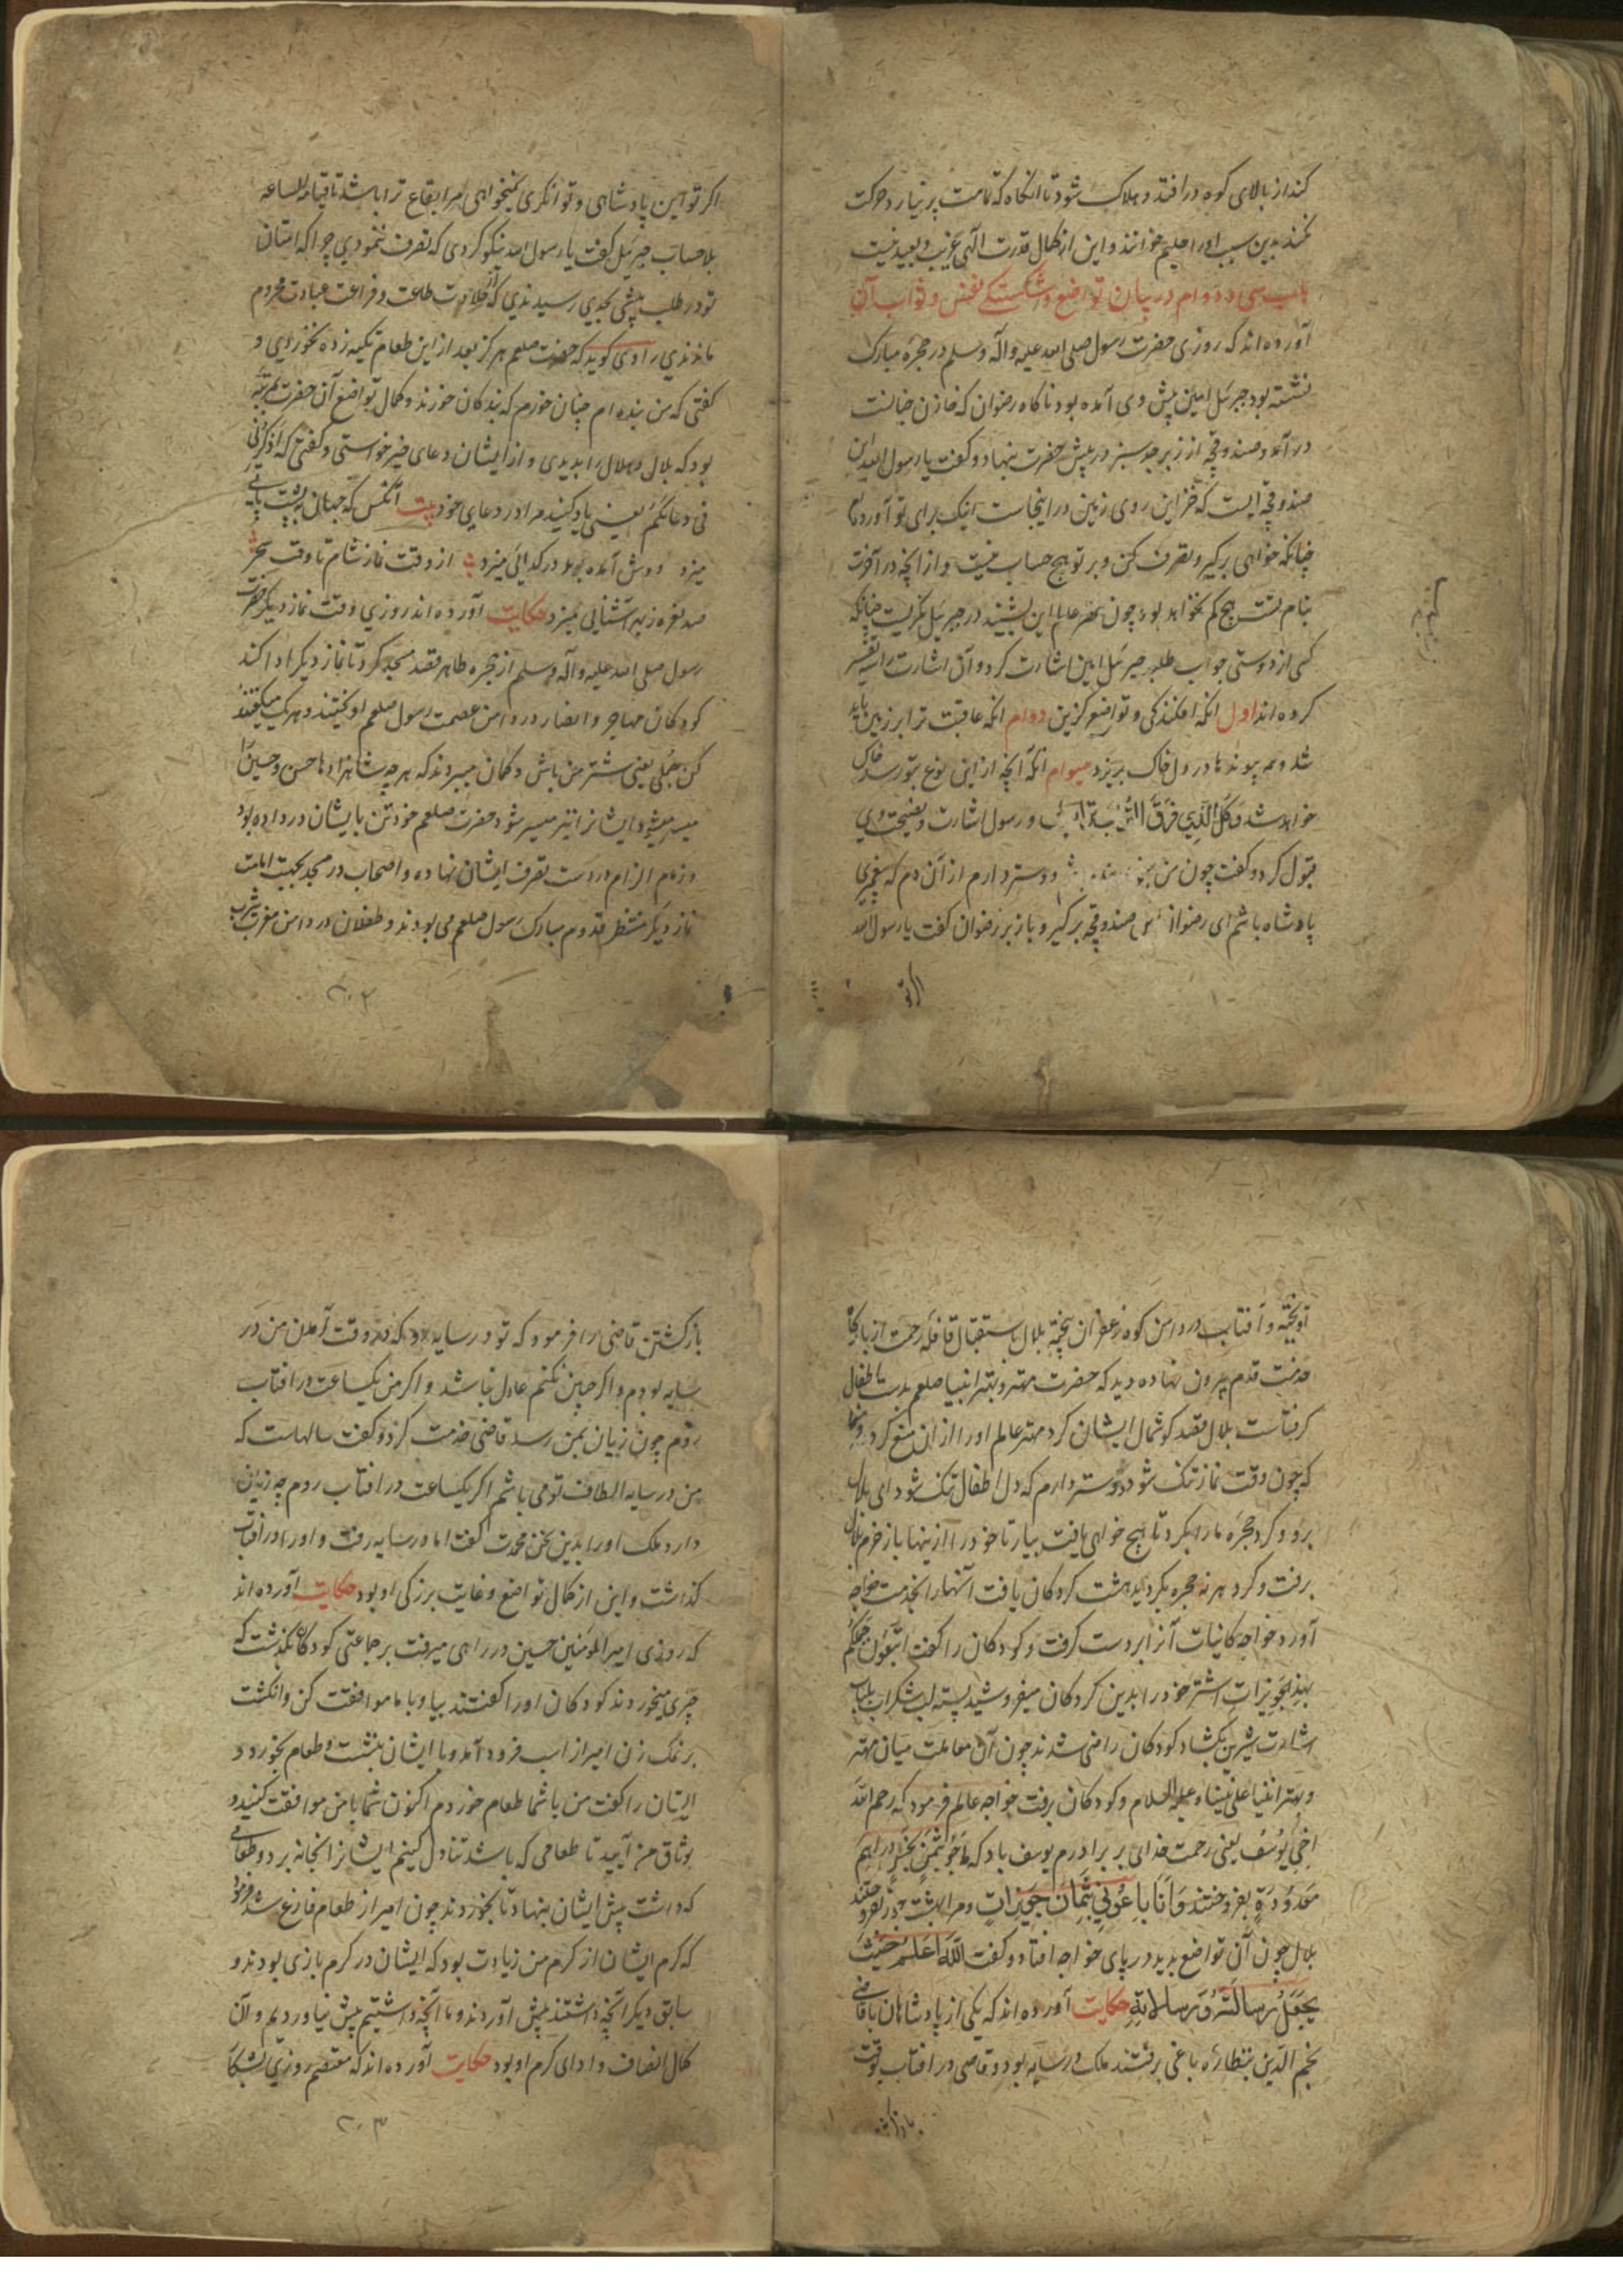 کند از بالای کوه در افتد و هلاک شود تا آنگاه که تمامت پر نیارد حرکت
نکند بدین سبب او را حلیم خوانند و این از کمال قدرت الهی غریب و بعید نیست
باب سی و دوام در بیان تواضع و شکستکی نفس و ثواب آن
آورده اند که روزی حضرت رسول صلی الله علیه وآله وسلم در حجره مبارک
نشسته بود جبرئیل امین پیش وی آمده بود ناکاه رضوان که خازن جنانست
در آمد و صندوقچه از زبرجد سبز در پیش حضرت بنهاد و کفت یا رسول الله این
صندوقچه ایست که خزاین روی زمین در اینجاست اینک برای تو آوردم
چنانکه خواهی برکیر و تصرف کن و بر تو هیچ حساب نیست و از انچه در آخرت
بنام تست هیچ کم نخواهد بود چون مهتر عالم این بشنید در جبرئیل نکریست چنانکه
کسی از دوستی جواب طلبد جبرئیل امین اشارت کرد و آن اشارت را سه تفسیر
کرده اند اول انکه افکندکی و تواضع کزین دوام انکه عاقبت ترا بر زمین باید
شد و همه پیوندها در دل خاک بریزد سیوام انکه آنچه از این نوع بتو رسد خاک
خواهد شد و کل الذی فوق التراب تراب و رسول اشارت و نصیحت وی
قبول کرد و کفت چون من بنده دوستر دارم از آن دم که پیغمبری
پادشاه باشم ای رضوان این صندوقچه برکیر و باز بر رضوان کفت یا رسول الله
اکر تو
اکر تو این پادشاهی و توانکری نمیخواهی مر ابقاع ترا باشد تا قیام الساعه
بلا حساب جبرئیل کفت یا رسول الله نیکو کردی که تصرف ننمودی چرا که امتان
تو در طلب پیشی بحدی رسیدندی که از حلاوت طاعت و فراغت عبادت محروم
ماندندی راوی کوید که حضرت صلعم هرکز بعد از این طعام تکیه زده نخوردی و
کفتی که من بنده ام چنان خورم که بندکان خورند و کمال تواضع آن حضرت بمرتبه
بود که بلال و هلال را بدیدی و از ایشان دعای خیر خواستی و کفتی که اذکرنی
فی دعائکم یعنی یاد کنید مرا در دعای خود بیت آنکس که جهان پشت پائی
میزد دوش آمده بود در کدائی میزد از وقت نماز شام تا وقت سحر
صد نعره ز بهر آشنائی میزد حکایت آورده اند روزی وقت نماز دیکر حضرت
رسول صلی الله علیه وآله وسلم از حجره طاهر قصد مسجد کرد تا نماز دیکر ادا کند
کودکان مهاجر و انصار در دامن عصمت رسول صلعم اویختند و هر یک میکفتند
کن جملی یعنی شتر من باش و کمان میبردند که هر چه شاهزادها حسن و حسین را
میسر میشود ایشانرا نیز میسر شود حضرت صلعم خود تن بایشان در داده بود
و زمام الزام در دست تصرف ایشان نهاده و اصحاب در مسجد بجهت امامت
نماز دیکر منتظر قدوم مبارک رسول صلعم می بودند و طفلان در دامن مغرب یثرب
۲۰۲
آویخته و آفتاب در دامن کوه زعفران بیخته بلال باستقبال قافله رحمت از بارکاه
خدمت قدم بیرون نهاده دید که حضرت مهتر و بهتر انبیا صلعم بدست اطفال
کرفتاست بلال قصد کوشمال ایشان کرد مهتر عالم او را از آن منع کرد و فرمود
که چون وقت نماز تنک شود دوستر دارم که دل اطفال تنک شود ای بلال
برو و کرد حجره ما را بکرد تا هیچ خواهی یافت بیار تا خود را از اینها باز خرم بلال
برفت و کرد هر نه حجره بکردید هشت کردکان یافت آنها را بخدمت خواجه
آورد خواجه کاینات آنرا بر دست کرفت و کودکان را کفت اتبیعون جملکم
بهذا الجویزات اشتر خود را بدین کردکان میفروشید پسته لب شکر آب بلباب
اشارت شیرین بکشاد کودکان راضی شدند چون آن معاملت میان مهتر
و بهتر انبیا علی نبینا و علیه السلام و کودکان برفت خواجه عالم فرمود که رحم الله
اخی یوسف یعنی رحمت خدای بر برادرم یوسف باد که باعوه بثمن بخس دراهم
معدودة بفروختند و انا باعونی بثمان جویزات و مرا بهشت جوز بفروختند
بلال چون آن تواضع بدید در پای خواجه افتاد و کفت الله اعلم حیث
یجعل رسالته و رسالاته حکایت آورده اند که یکی از پادشاهان با قاضی
نجم الدین بنظاره باغی برفتند ملک در سایه بود و قاضی در افتاب بوقت
بازکشتن
بازکشتن قاضی را فرمود که تو در سایه رو که در وقت آمدن من در
سایه بودم و اکر چنین نکنم عادل نباشم و اکر من یکساعت در افتاب
روم چون زیان بمن رسد قاضی خدمت کرد و کفت سالهاست که
من در سایه الطاف تو می باشم اکر یکساعت در افتاب روم چه زیان
دارد ملک او را بدین سخن محمدت کفت اما در سایه رفت و او را در افتاب
کذاشت و این از کمال تواضع و غایت بزرکی او بود حکایت آورده اند
که روزی امیرالمومنین حسین در راهی میرفت بر جماعتی کودکان بکذشت که
چیزی میخوردند کودکان او را کفتند بیا و با ما موافقت کن و انکشت
بر نمک زن امیر از اسب فرود آمد و با ایشان بنشست و طعام بخورد و
ایشان را کفت من با شما طعام خوردم اکنون شما با من موافقت کنید و
بوثاق من آیید تا طعامی که باشد تناول کنیم ایشانرا بخانه برد و طعامی
که داشت پیش ایشان بنهاد تا بخوردند چون امیر از طعام فارغ شد فرمود
که کرم ایشان از کرم من زیادت بود که ایشان در کرم بازی بودند و
سابق دیکر آنچه داشتند پیش آوردند و ما آنچه داشتیم پیش نیاوردیم و آن
کمال انصاف و ادای کرم او بود حکایت آورده اند که معتصم روزی بشکار
۲۰۳